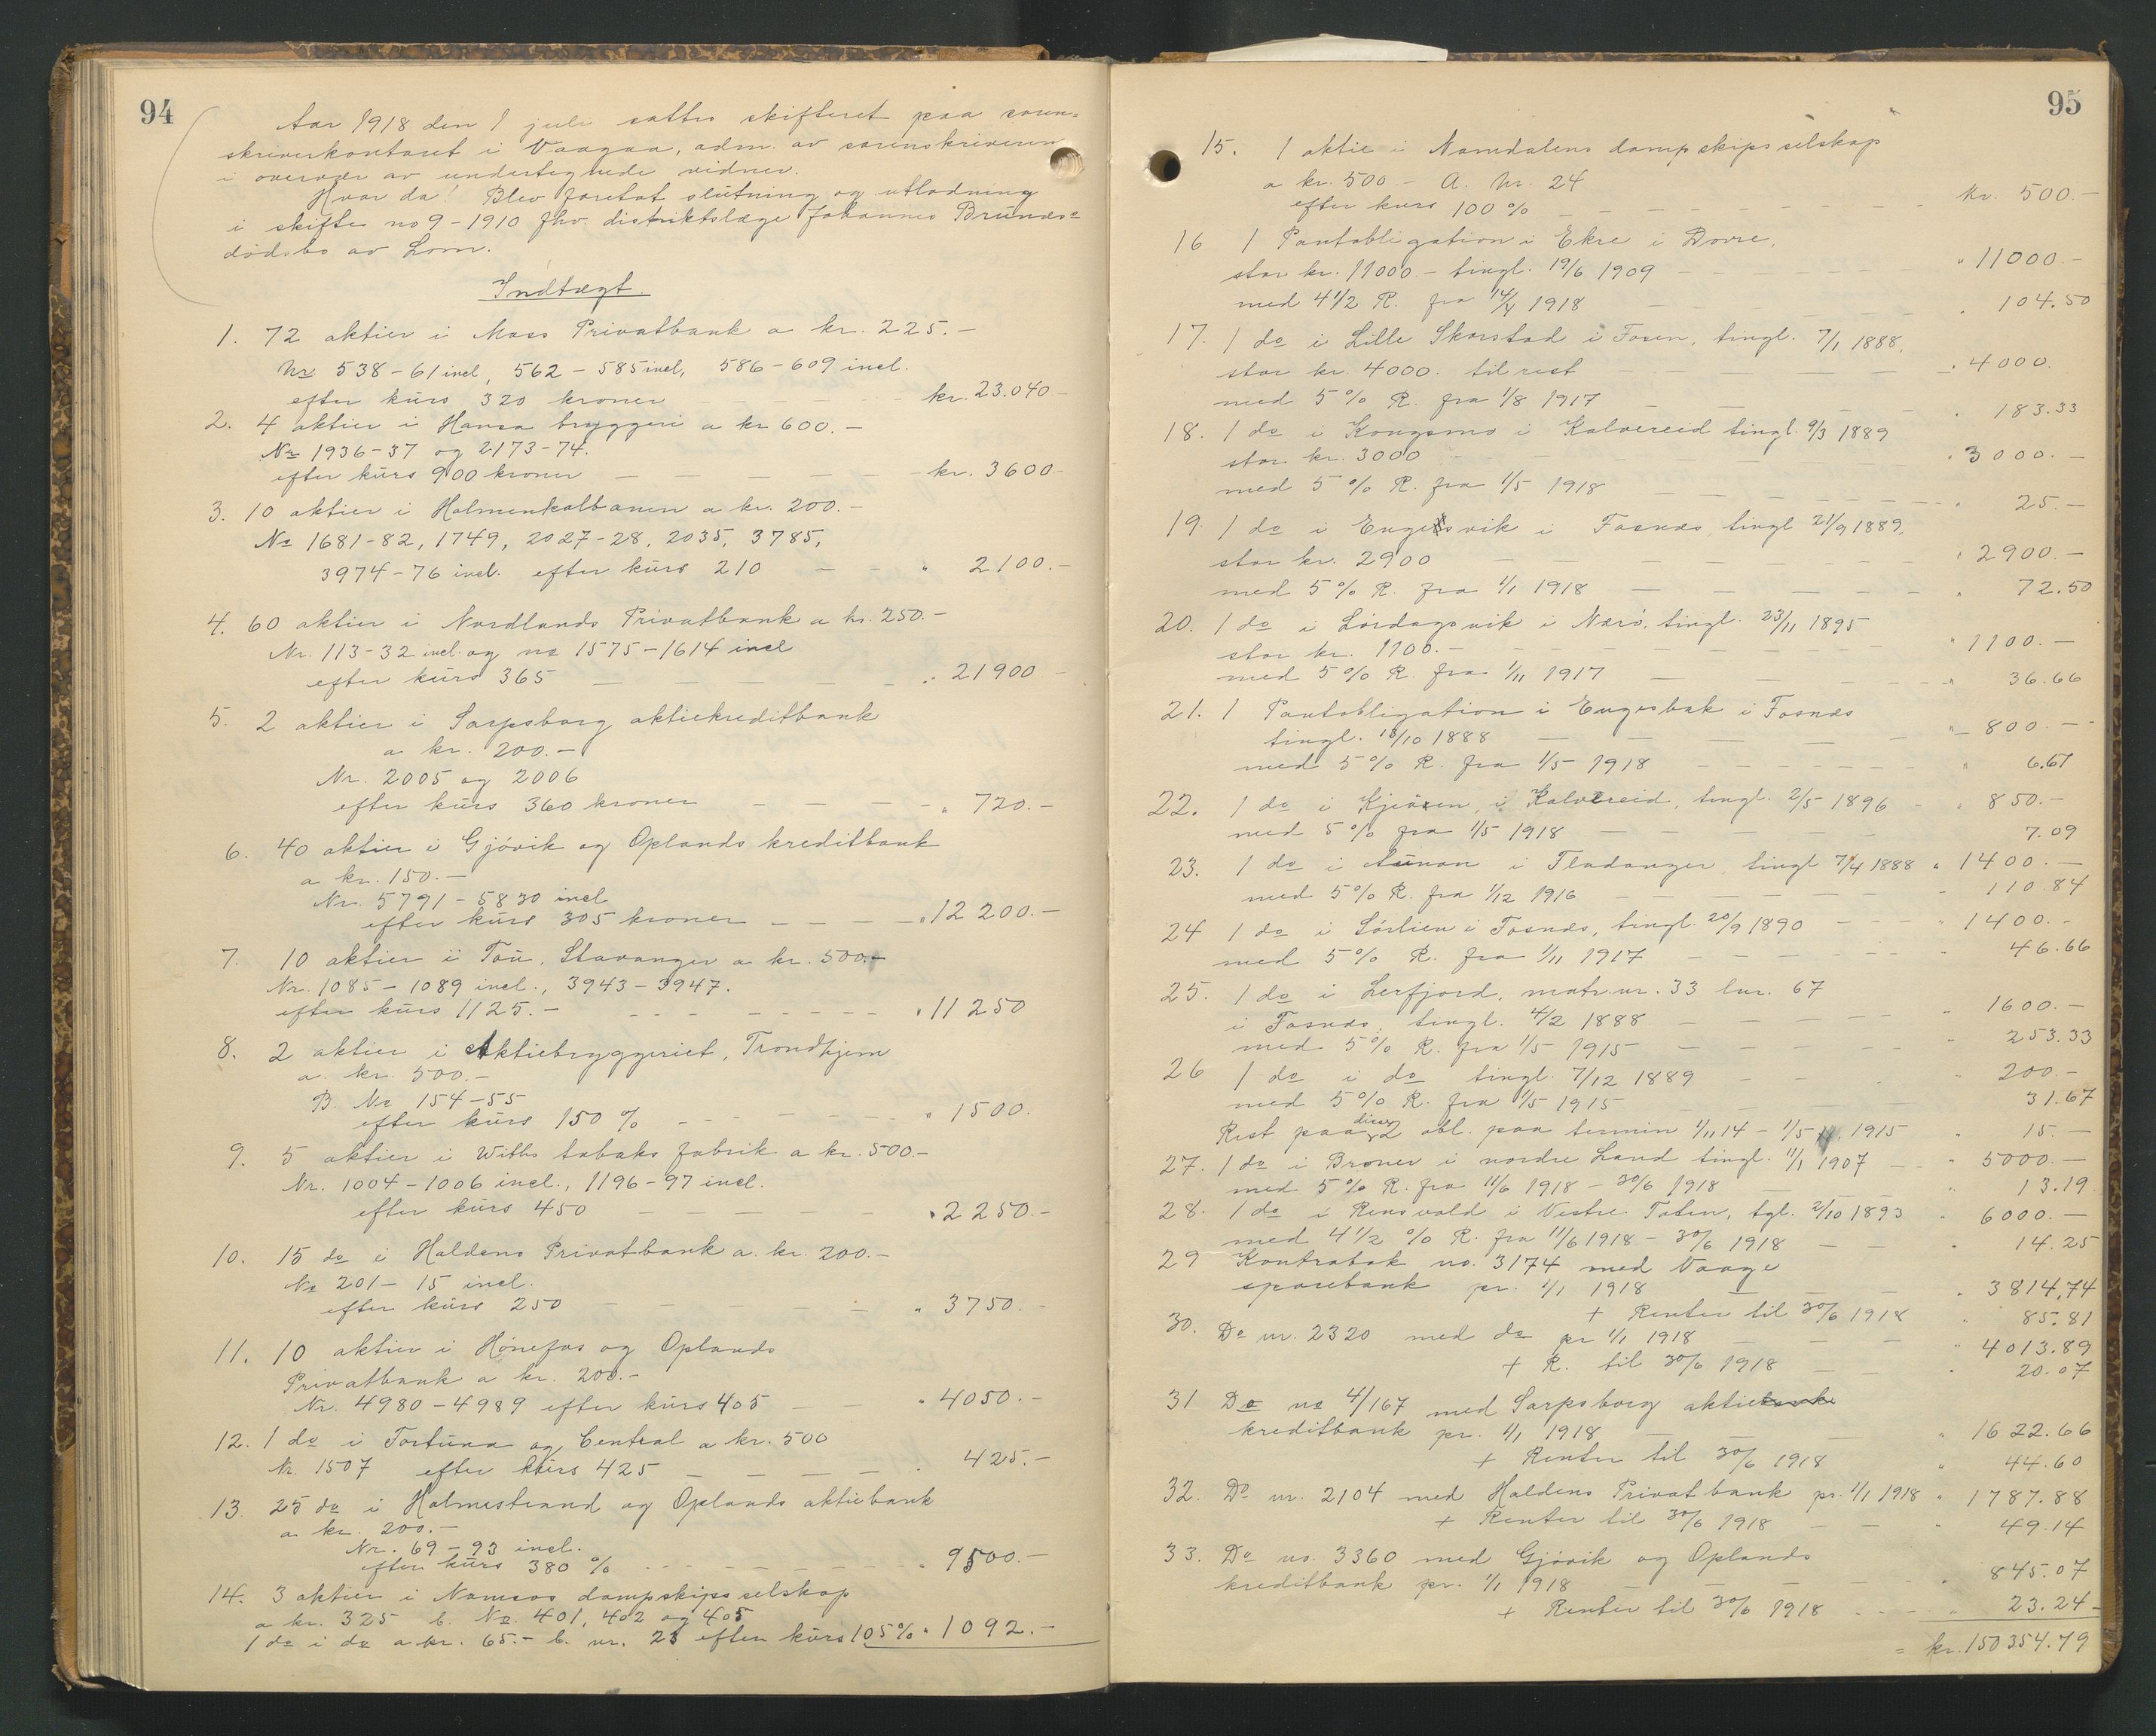 94
Aar 1918 den 1 juli sattes skifteret paa soren-
skriverkontoret i Vaagaa, adm. av sorenskriveren
i overvær av undertegnede vidner.
Hvor da! Blev foretat slutning og utlodning
i skifte no 9-1910 fhv. distriktslæge Johannes Brunds-
dödsbo av Lom.
Indtægt.
1. 72 aktier i Moss Privatbank a kr. 225.-
Nr. 538-61 incl, 562-585 incl, 586-609 incl.
efter kurs 320 kroner kr. 23.040-
2. 4 aktier i Hansa bryggeri a kr 600.-
Nr. 1936-37 og 2173-74.
efter kurs 900 kroner kr. 3600-
3. 10 aktier i Holmenkolbanen a kr. 200.-
No 1681-82, 1749, 2027-28, 2035, 3785,
3974-76 incl. efter kurs 210 " 2100.-
4. 60 aktier i Nordlands Privatbank a kr. 250.-
Nr. 113-32 incl. og no 1575-1614 incl
efter kurs 365 " 21900-
5. 2 aktier i Sarpsborg aktiekreditbank
a kr. 200.-
Nr. 2005 og 2006
efter kurs 360 kroner " 720.-
6. 40 aktier i Gjövik og Oplands kreditbank
a kr. 150.-
Nr. 5791-5830 incl
efter kurs 305 kroner " 12200.-
7. 10 aktier i Tou, Stavanger a kr. 500.-
Nr. 1085-1089 incl., 3943-3947.
efter kurs 1125.- " 11250
8. 2 aktier i Aktiebryggeriet, Trondhjem
a. kr. 500.-
B. No 154-55
efter kurs 150 % " 1500.
9. 5 aktier i Withs tobaks fabrik a kr. 500.-
Nr. 1004-1006 incl., 1196-97 incl.
efter kurs 450 " 2250.-
10. 15 do i Haldens Privatbank a kr. 200.-
No 201-15 incl.
efter kurs 250 " 3750.-
11. 10 aktier i Hönefos og Oplands
Privatbank a kr. 200.-
Nr. 4980-4989 efter kurs 405 " 4050.-
12. 1 do i Fortuna og Central a kr. 500
Nr. 1507 efter kurs 425 425.-
13. 25 do i Holmestrand og Oplands aktiebank
a kr. 200.-
Nr. 69-93 incl.
efter kurs 380 % " 9500.-
14. 3 aktier i Namsos dampskipsselskap
a kr. 325 b. No. 401, 402 og 405
1 do i do a kr. 65.- b. nr. 25 efter kurs 105% " 1092.-
95
15. 1 aktie i Namdalens dampskipsselskap
a kr. 500.- A. Nr. 24
efter kurs 100 % kr. 500.-
16 1 Pantobligation i Ekre i Dovre,
stor kr. 11000.- tingl. 19/6 1909 " 11000.-
med 4 1/2 R. fra 14/4 1918 " 104.50
17. 1 do i Lille Skorstad i Fosen, tingl. 7/1 1888,
stor kr. 4000. til rest " 4000.
med 5 % R. fra 1/8 1917 " 183.33
18. 1 do i Kongsmo i Kolvereid tingl. 9/3 1889
stor kr. 3000 " 3000.-
med 5 % R. fra 1/5 1918 " 25.-
19. 1 do i Engesvik i Fosnes, tingl 21/9 1889,
stor kr. 2900 " 2900.-
med 5 % R. fra 1/1 1918 " 72.50
20. 1 do i Lördagsvik i Nærö, tingl. 23/11 1895
stor kr. 1100.- " 1100.-
med 5 % R. fra 1/11 1917 " 36.66
21. 1 Pantobligation i Engesbak i Fosnes
tingl. 13/10 1888 " 800.-
med 5 % R. fra 1/5 1918 " 6.67
22. 1 do i Kolvereid, tingl. 2/5 1896 " 850.-
med 5 % fra 1/5 1918 7.09
23. 1 do i Aunan i Fladanger, tingl 7/4 1888 " 1400.-
med 5 % R. fra 1/12 1916 " 110.84
24 1 do i Sörlien i Fosnes, tingl. 20/9 1890 " 1400.-
med 5 % R. fra 1/11 1917 " 46.66
25. 1 do i Lerfjord, matr. nr. 33 lnr. 67
i Fosnes, tingl. 4/2 1888 " 1600.-
med 5 % R. fra 1/5 1915 " 253.33
26 1 do i do tingl. 7/12 1889 " 200.-
med 5 % R. fra 1/5 1915 31.67
Rest paa disse 2 obl. paa termin 1/11 14 - 1/5 1915 " 15.-
27. 1 do i Broner i nordre Land tingl. 11/1 1907 " 5000.-
med 5 % R. fra 11/6 1918 - 30/6 1918 " 13.19
28. 1 do i Rensvold i Vestre Toten, tgl. 2/10 1893 " 6000.-
med 4 1/2 % R. fra 11/6 1918 - 30/6 1918 " 14.25
29 Kontrabok no. 3174 med Vaage
sparebank pr. 1/1 1918 " 3814,74
+ Renter til 30/6 1918 " 85.81
30. Do nr. 2320 med do pr 1/1 1918 " 4013.89
+ R. til 30/6 1918 " 20.07
31 Do no 4/167 med Sarpsborg aktiebank
kreditbank pr. 1/1 1918 " 1622.66
+ Renter til 30/6 1918 " 44.60
32. Do nr. 2104 med Haldens Privatbank pr. 1/1 1918 " 1787.88
+ Renter til 30/6 1918 " 49.14
33. Do no. 3360 med Gjövik og Oplands
kreditbank pr. 1/1 1918 " 845.07
+ Renter til 30/6 1918 " 23.24
= kr. 150354.79